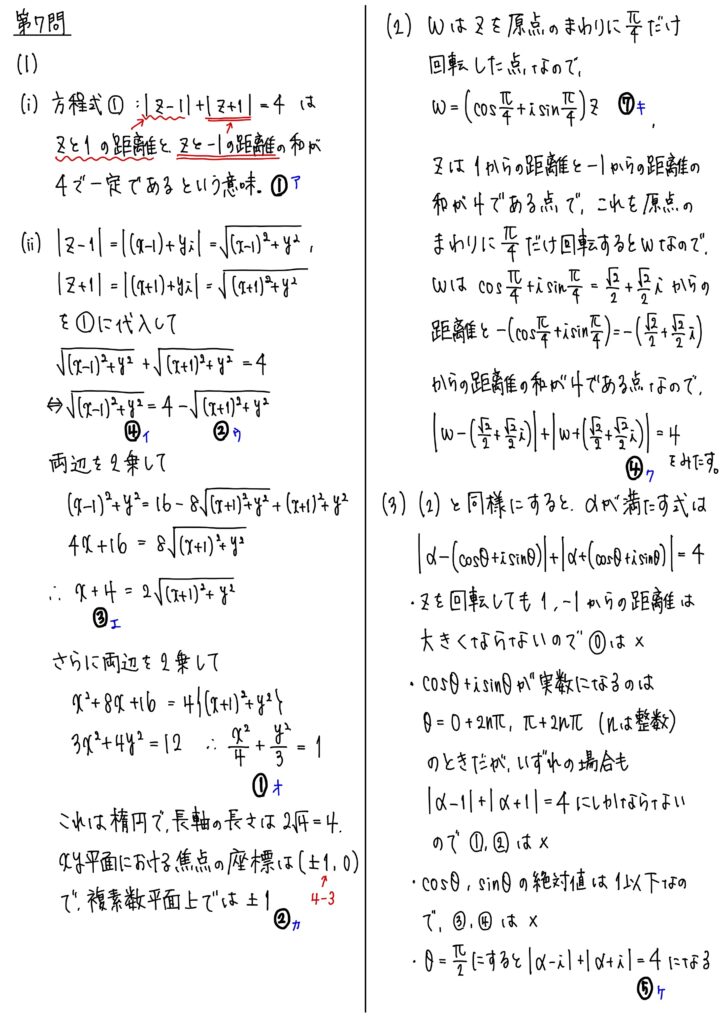 第7問
(1)
(i) 方程式①:|z-1|+|z+1|=4 は
zと1の距離と、zと-1の距離の和が
4で一定であるという意味。 ① ア
(ii) |z-1|=|(x-1)+yi|=√((x-1)²+y²),
|z+1|=|(x+1)+yi|=√((x+1)²+y²)
を①に代入して
√((x-1)²+y²)+√((x+1)²+y²)=4
⇔√((x-1)²+y²)=4-√((x+1)²+y²)
④ イ ② ウ
両辺を2乗して
(x-1)²+y²=16-8√((x+1)²+y²)+(x+1)²+y²
4x+16=8√((x+1)²+y²)
∴ x+4=2√((x+1)²+y²)
③ エ
さらに両辺を2乗して
x²+8x+16=4{(x+1)²+y²}
3x²+4y²=12 ∴ x²/4+y²/3=1
① オ
これは楕円で、長軸の長さは2√4=4.
xy平面における焦点の座標は(±1,0)
で、複素数平面上では±1 4-3
② カ
(2) wはzを原点のまわりにπ/4だけ
回転した点なので、
w=(cosπ/4+isinπ/4)z ⑦ キ,
zは1からの距離と-1からの距離の
和が4である点で、これを原点の
まわりにπ/4だけ回転するとwなので、
wは cosπ/4+isinπ/4=√2/2+√2/2i からの
距離と-(cosπ/4+isinπ/4)=-(√2/2+√2/2i)
からの距離の和が4である点なので、
|w-(√2/2+√2/2i)|+|w+(√2/2+√2/2i)|=4
④ ク をみたす。
(3) (2)と同様にすると、αが満たす式は
|α-(cosθ+isinθ)|+|α+(cosθ+isinθ)|=4
・zを回転しても1,-1からの距離は
大きくならないので⓪は×
・cosθ+isinθが実数になるのは
θ=0+2nπ, π+2nπ (nは整数)
のときだが、いずれの場合も
|α-1|+|α+1|=4にしかならない
ので①,②は×
・cosθ,sinθの絶対値は1以下なの
で、③,④は×
・θ=π/2にすると|α-i|+|α+i|=4になる
⑤ ケ